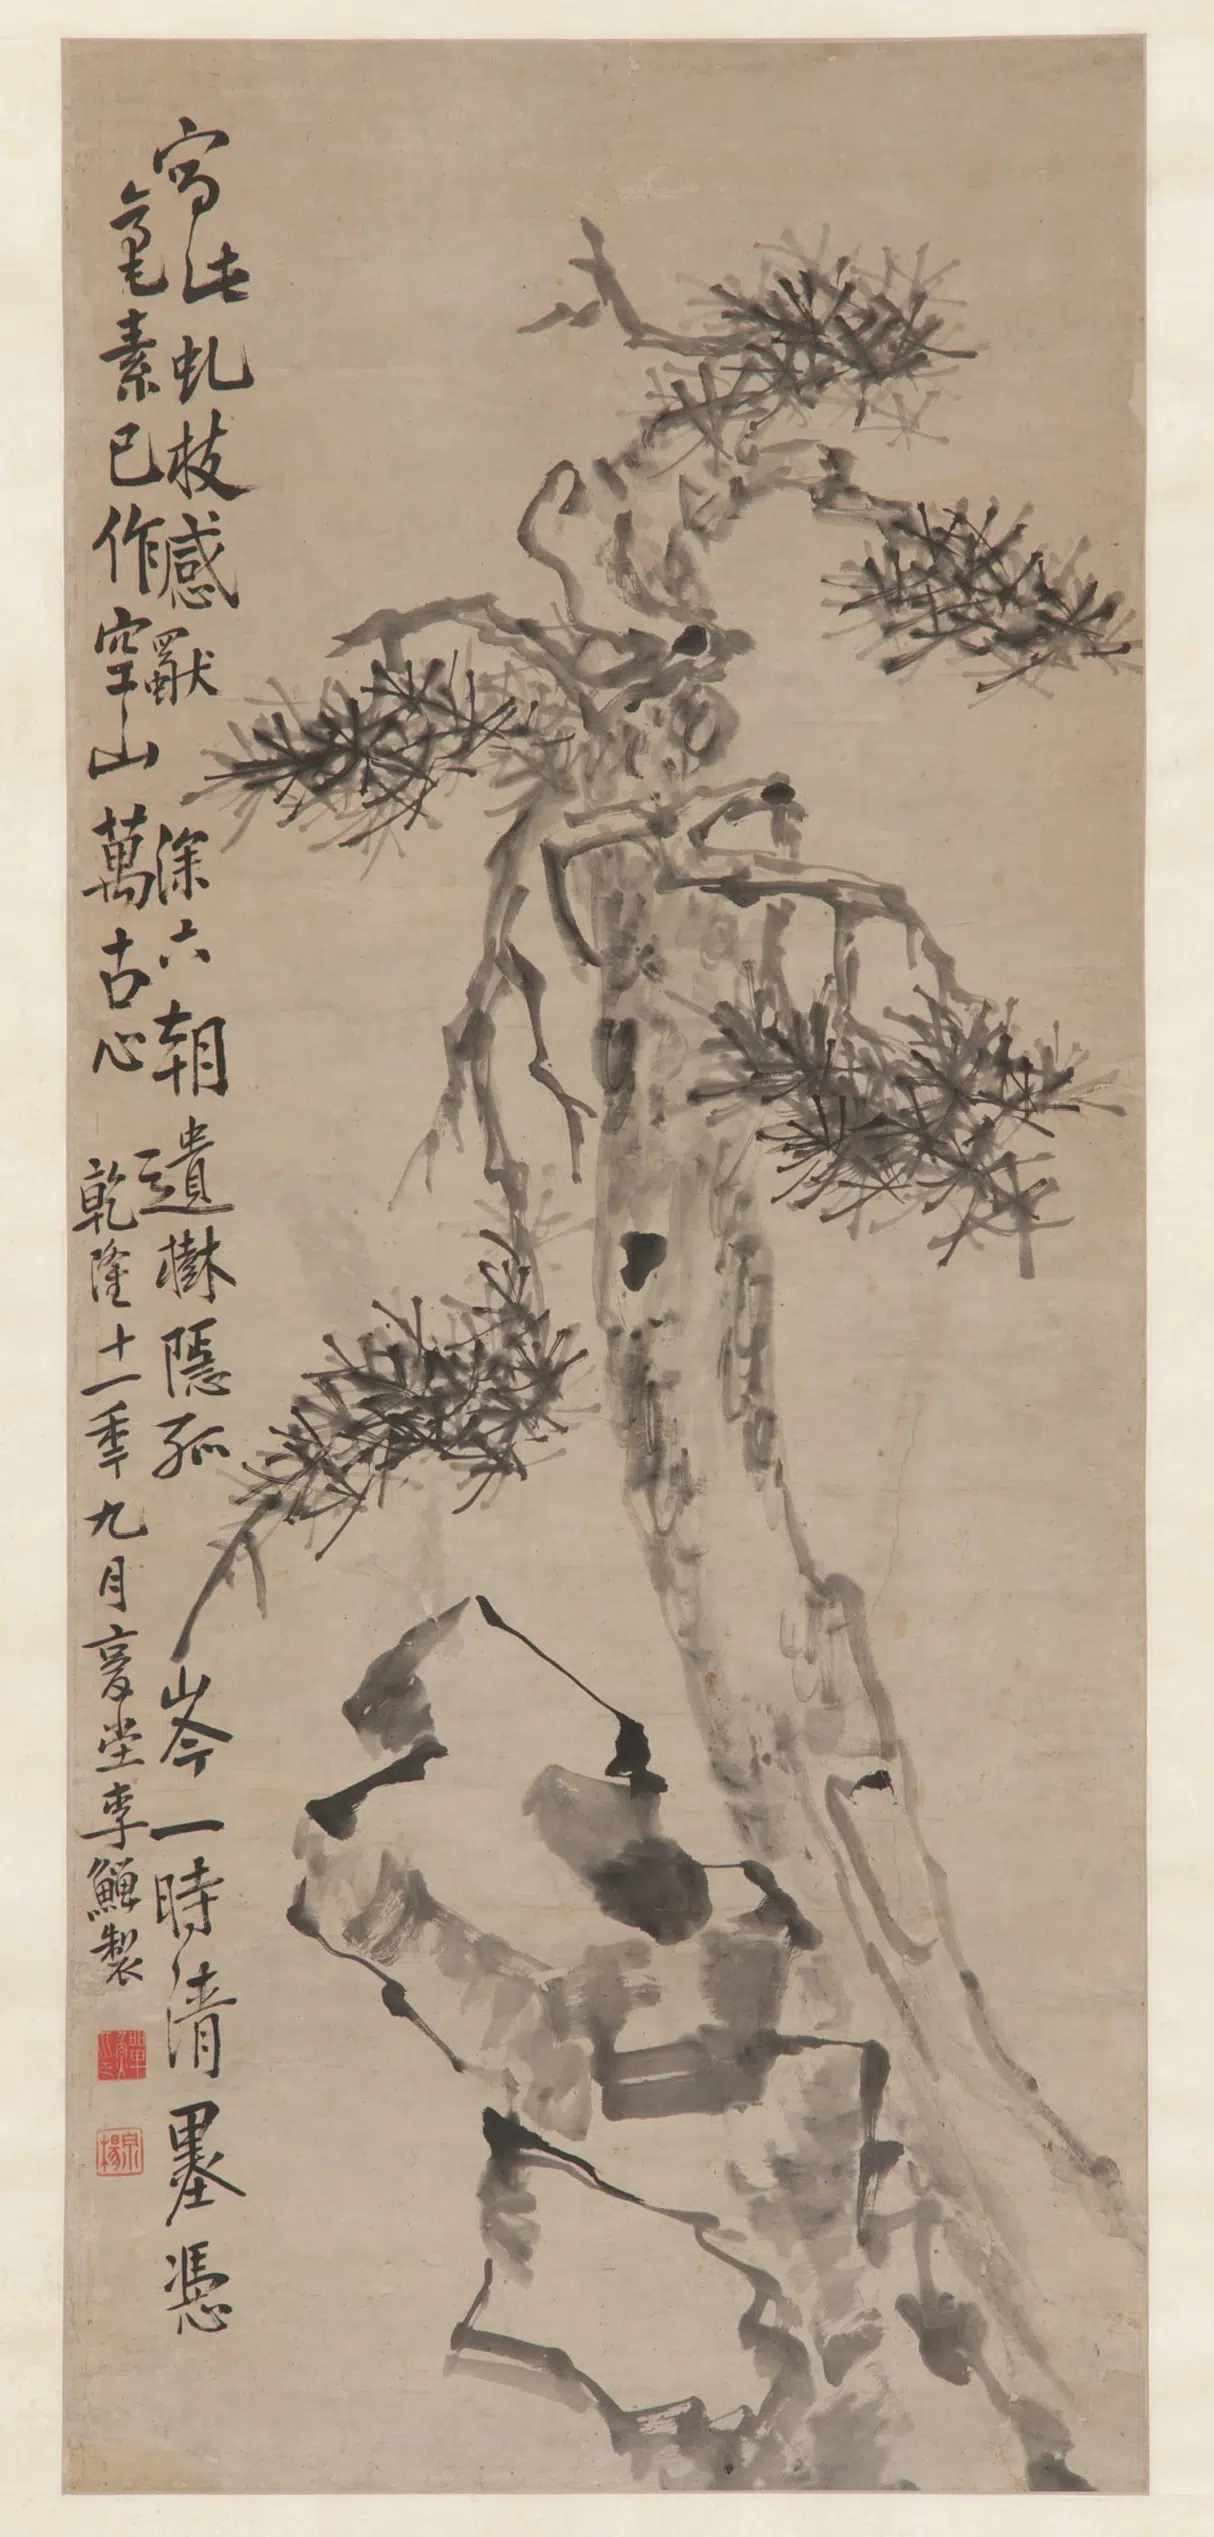 寫此虬枝感深六朝遺樹隱孤岑一時清墨憑
毫素已作空山萬古心 乾隆十一秊九月复堂李鱓製